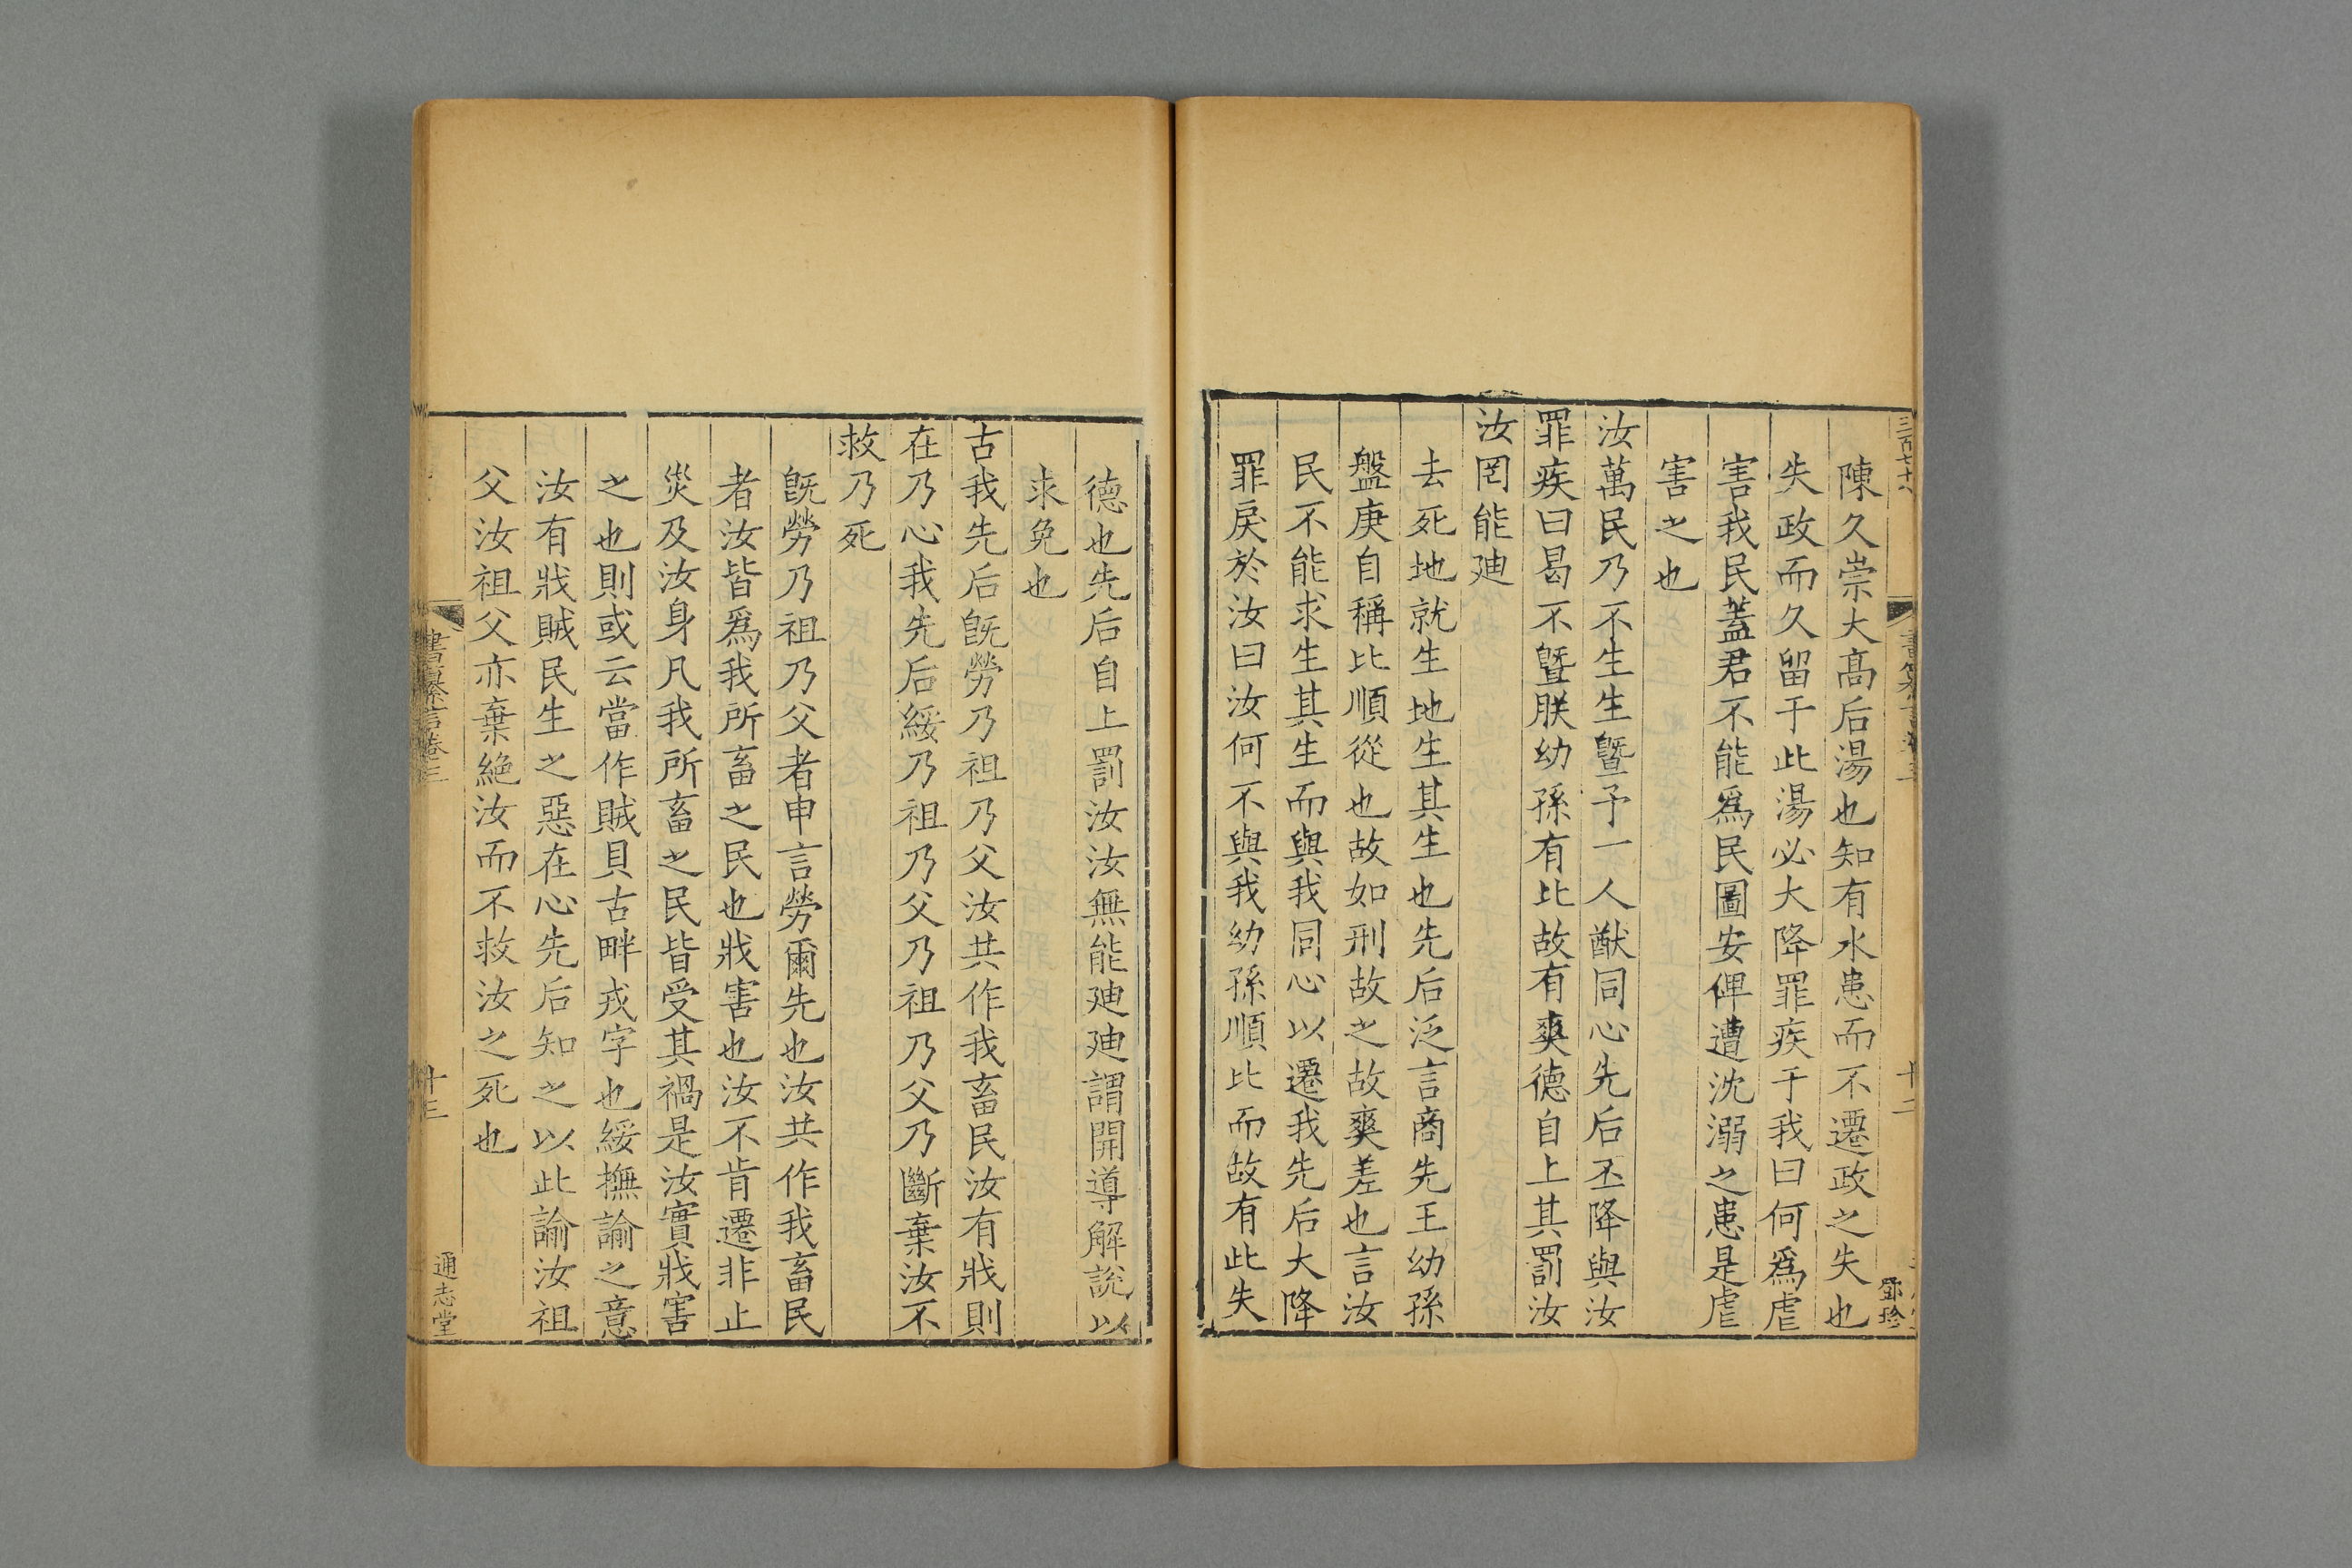 陳久崇大髙后湯也知有水患而不遷政之失也
失政而久留于此湯必大降罪疾于我曰何爲虐
害我民蓋君不能爲民圖安俾遭沈溺之患是虐
害之也
汝萬民乃不生生曁予一人猷同心先后丕降與汝
罪疾曰曷不曁朕幼孫有比故有爽德自上其罰汝
汝罔能廸
去死地就生地生其生也先后泛言商先王幼孫
盤庚自稱比順從也故如刑故之故爽差也言汝
民不能求生其生而與我同心以遷我先后大降
罪戾於汝曰汝何不與我幼孫順比而故有此失
十二
珍
德也先后自上罰汝汝無能廸廸謂開導解説以
求免也
古我先后旣勞乃祖乃父汝共作我畜民汝有戕則
在乃心我先后綏乃祖乃父乃祖乃父乃斷棄汝不
救乃死
旣勞乃祖乃父者申言勞爾先也汝共作我畜民
者汝皆爲我所畜之民也戕害也汝不肯遷非止
災及汝身凡我所畜之民皆受其禍是汝實戕害
之也則或云當作賊貝古畔戎字也綏撫諭之意
汝有戕賊民生之惡在心先后知之以此諭汝祖
父汝祖父亦棄絶汝而不救汝之死也
書纂言卷三
十三
通志堂